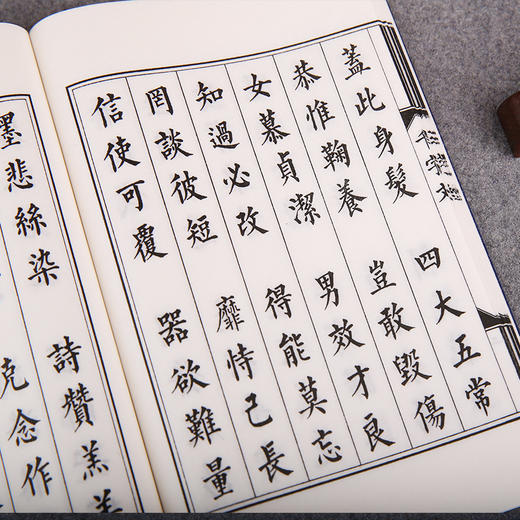 蓋此身髮 四大五常
恭惟鞠養 豈敢毀傷
女慕貞潔 男效才良
知過必改 得能莫忘
罔談彼短 靡恃己長
信使可覆 器欲難量
墨悲絲染 詩讚羔羊
克念作